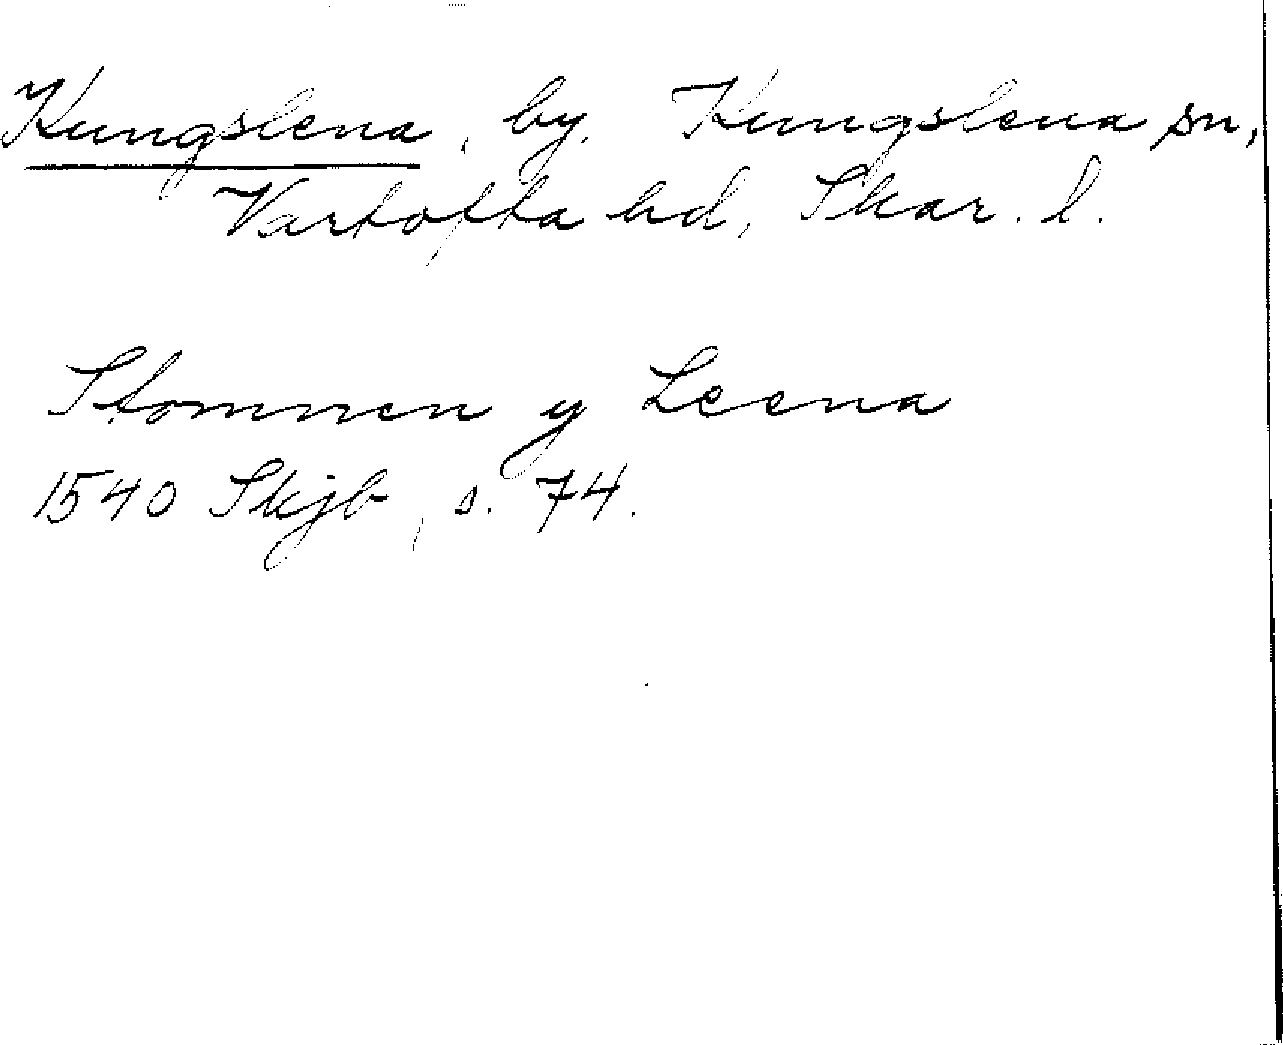 Kungslena, by, Kungslena sn,
Vartofta hd, Skar. l.
Stommen y Leena
1540 Skjb, s. 74.